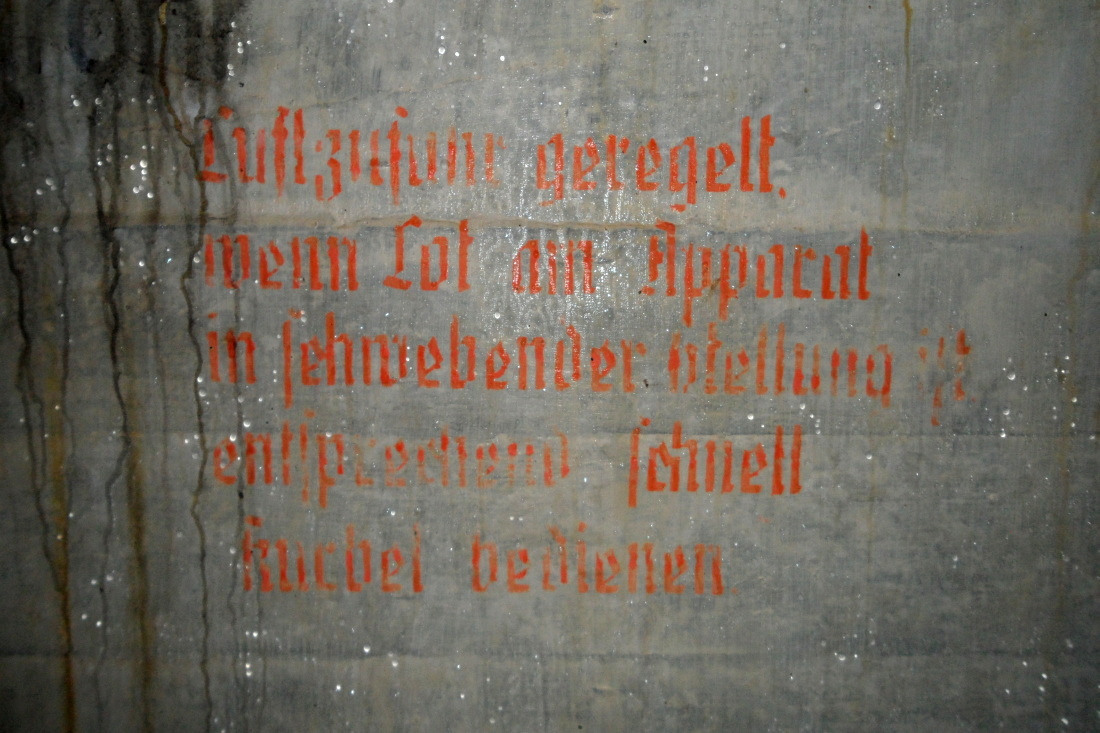 Luftzufuhr geregelt,
wenn Lot am Apparat
in schwebender Stellung ist
entsprechend schnell
Kurbel bedienen.